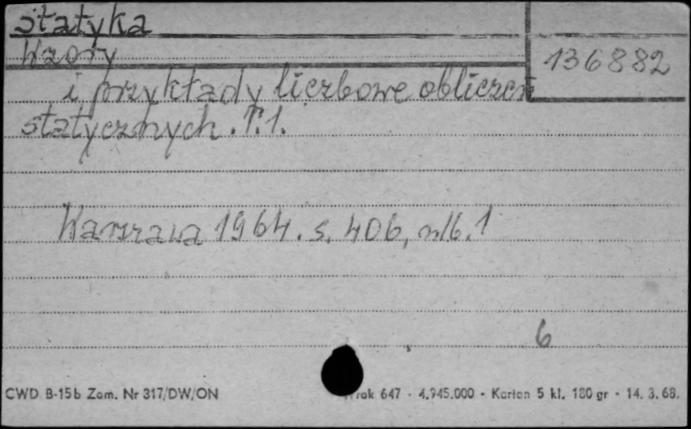 Statyka
Wzory
136882
i przykłady liczbowe obliczeń
statycznych. T. 1.
Warszawa 1964. s. 406, nlb. 1
6
CWD B-15b Zam. Nr 317/DW/ON
647 - 4.945.000 - Karton 5 kl. 180 gr - 14. 3. 68.